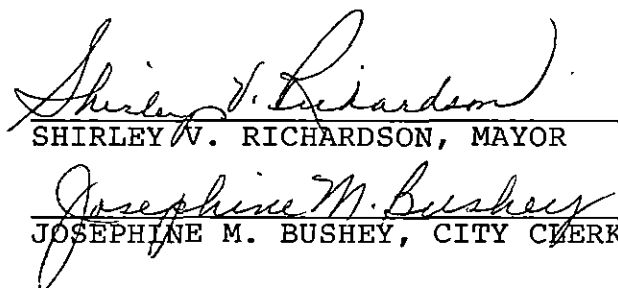 Shirley V. Richardson
SHIRLEY V. RICHARDSON, MAYOR
Josephine M. Bushey
JOSEPHINE M. BUSHEY, CITY CLERK